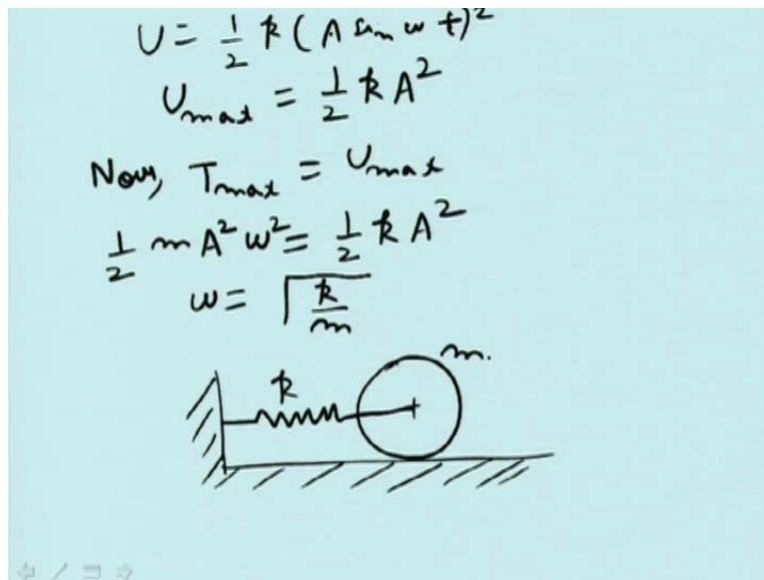 U = 1/2 k (A sin ω t)²
U max = 1/2 k A²
Now, T max = U max
1/2 m A² ω² = 1/2 k A²
ω = √(k/m)
m.
k